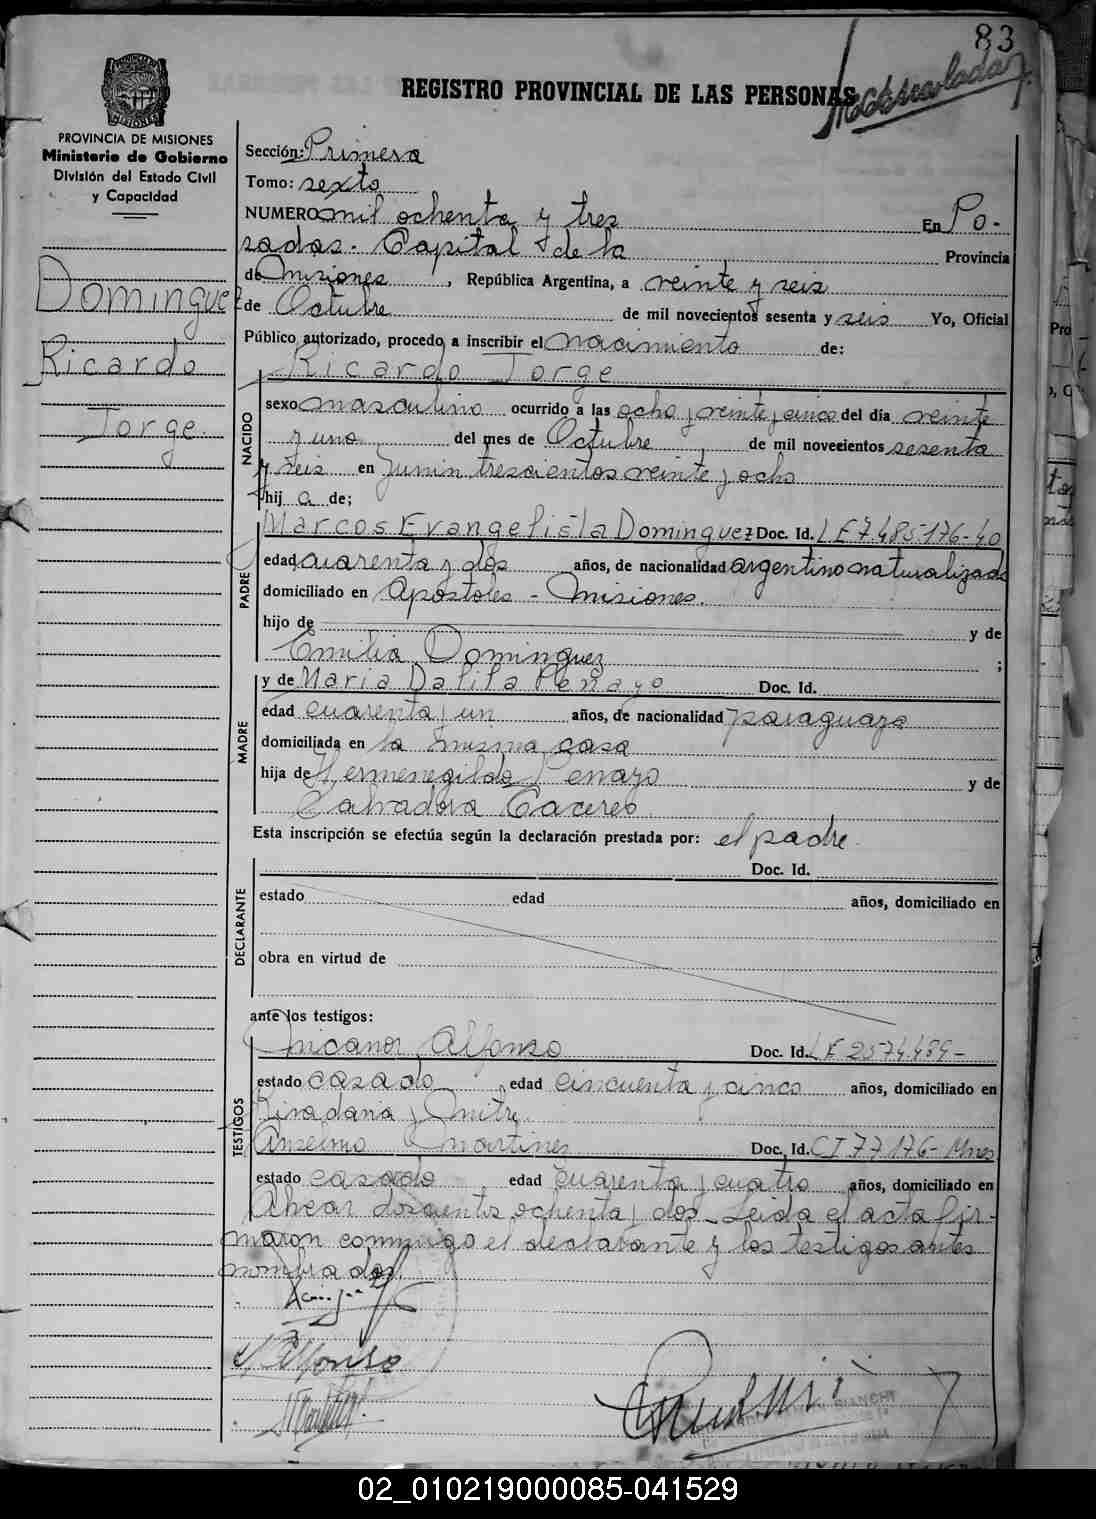 83
Mecanolada
REGISTRO PROVINCIAL DE LAS PERSONAS
PROVINCIA DE MISIONES
Ministerio de Gobierno
División del Estado Civil
y Capacidad
Dominguez
Ricardo
Jorge
Sección: Primera
Tomo: sexto
NUMERO mil ochenta y tres En Po-
sadas. Capital de la Provincia
de Misiones, República Argentina, a veinte y seis
de Octubre de mil novecientos sesenta y seis Yo, Oficial
Público autorizado, procedo a inscribir el nacimiento de:
Ricardo Jorge
NACIDO
sexo masculino ocurrido a las ocho y veinte y cinco del día veinte
y uno del mes de Octubre de mil novecientos sesenta
y seis en Junin trescientos veinte y ocho
hij a de;
PADRE
Marcos Evangelista Dominguez Doc. Id. LE 7.485.176-40
edad cuarenta y dos años, de nacionalidad argentino naturalizado
domiciliado en Apostoles - Misiones.
hijo de y de
Emilia Dominguez ;
MADRE
y de Maria Dalila Penayo Doc. Id.
edad cuarenta y un años, de nacionalidad paraguaya
domiciliada en la misma casa
hija de Hermenegildo Penayo y de
Salvadora Caceres
Esta inscripción se efectúa según la declaración prestada por: el padre.
DECLARANTE
Doc. Id.
estado edad años, domiciliado en
obra en virtud de
ante los testigos:
TESTIGOS
Nicanor Alfonso Doc. Id. LE 2574.484-
estado casado edad cincuenta y cinco años, domiciliado en
Rivadavia y Mitre.
Anselmo Martines Doc. Id. CI 77176- Mnes
estado casado edad cuarenta y cuatro años, domiciliado en
Alvear doscientos ochenta y dos - Leida el acta fir-
maron conmigo el declarante y los testigos antes
nombrados.
Alfonso
BIANCHI
02_010219000085-041529